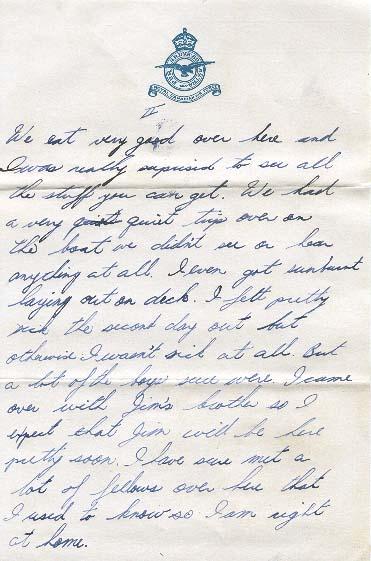 ROYAL CANADIAN AIR FORCE
II
We eat very good over here and
I was really suprised to see all
the stuff you can get. We had
a very quite quiet trip over on
the boat we didn't see or hear
anything at all. I even got sunburnt
laying out on deck. I felt pretty
sick the second day out but
otherwise I wasn't sick at all. But
a lot of the boys sure were. I came
over with Jim's brother so I
expect that Jim will be here
pretty soon. I have sure met a
lot of fellows over here that
I used to know so I am right
at home.